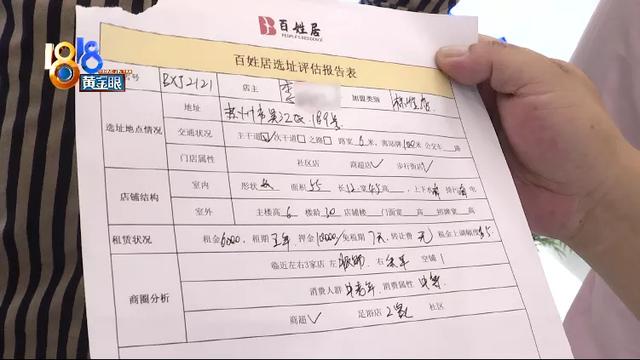 百姓居
PEOPLE'S RESIDENCE
1818
黄金眼
百姓居选址评估报告表
号 BXJ2121 店主 李 加盟类别 标准店
选址地点情况
地址 苏州市吴江区 189号
交通状况 主干道☑/次干道□之路□ 路宽6米,离站牌100米 公交车 路
门店属性 社区店 商超店✓ 步行街店✓
店铺结构
室内 形状 面积55 长12 宽4.5 高 ,上下水 排污 电
室外 主楼高6 楼龄30 店铺楼 门面宽 高 招牌宽 高
租赁状况 租金6000,租期五年,押金10000/免租期7天,转让费元,租金上调幅度5
商圈分析
临近左右3家店 左 右 空铺1
消费人群 中老年,消费属性 中等
商超✓ 足浴店2家 社区